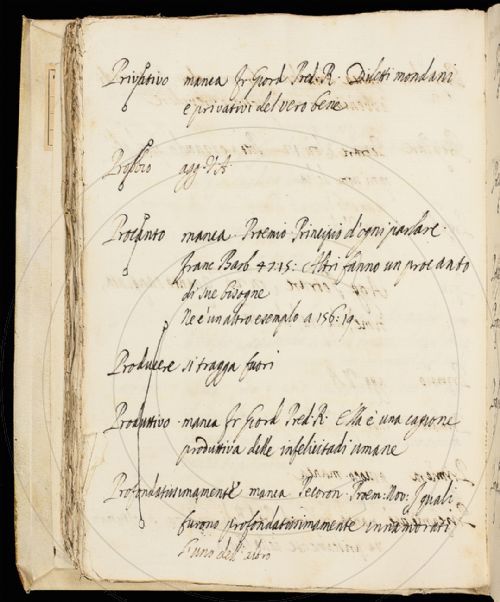 Privativo manca Fr Giord Pred. R. Diletti mondani
e privativi del vero bene
agg. V A
Procanto manca. Proemio Principio d'ogni parlare.
Franc Barb 4215: Altri fanno un procanto
di sue bisogne
Ne è un altro esemplo a 156: 19
Producere si tragga fuori
Produttivo manca Fr Giord Pred. R. Ella è una cagione
produttiva delle infelicitadi umane
Profondatissimamente manca Pecoron. Proem: Nov: I quali
furono profondatissimamente innamorati
l'uno dell'altro